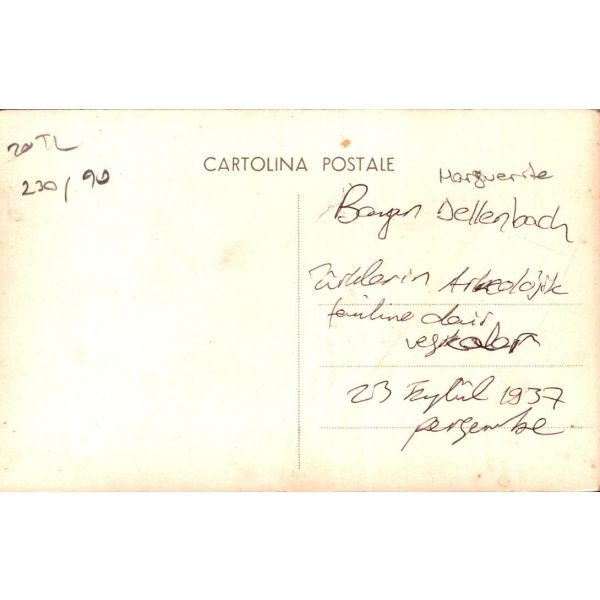 20 TL
230/90
CARTOLINA POSTALE
Marguerite
Bayan Dellenbach
Türklerin Arkeolojik
tarihine dair
vesikalar
23 Eylül 1937
perşembe